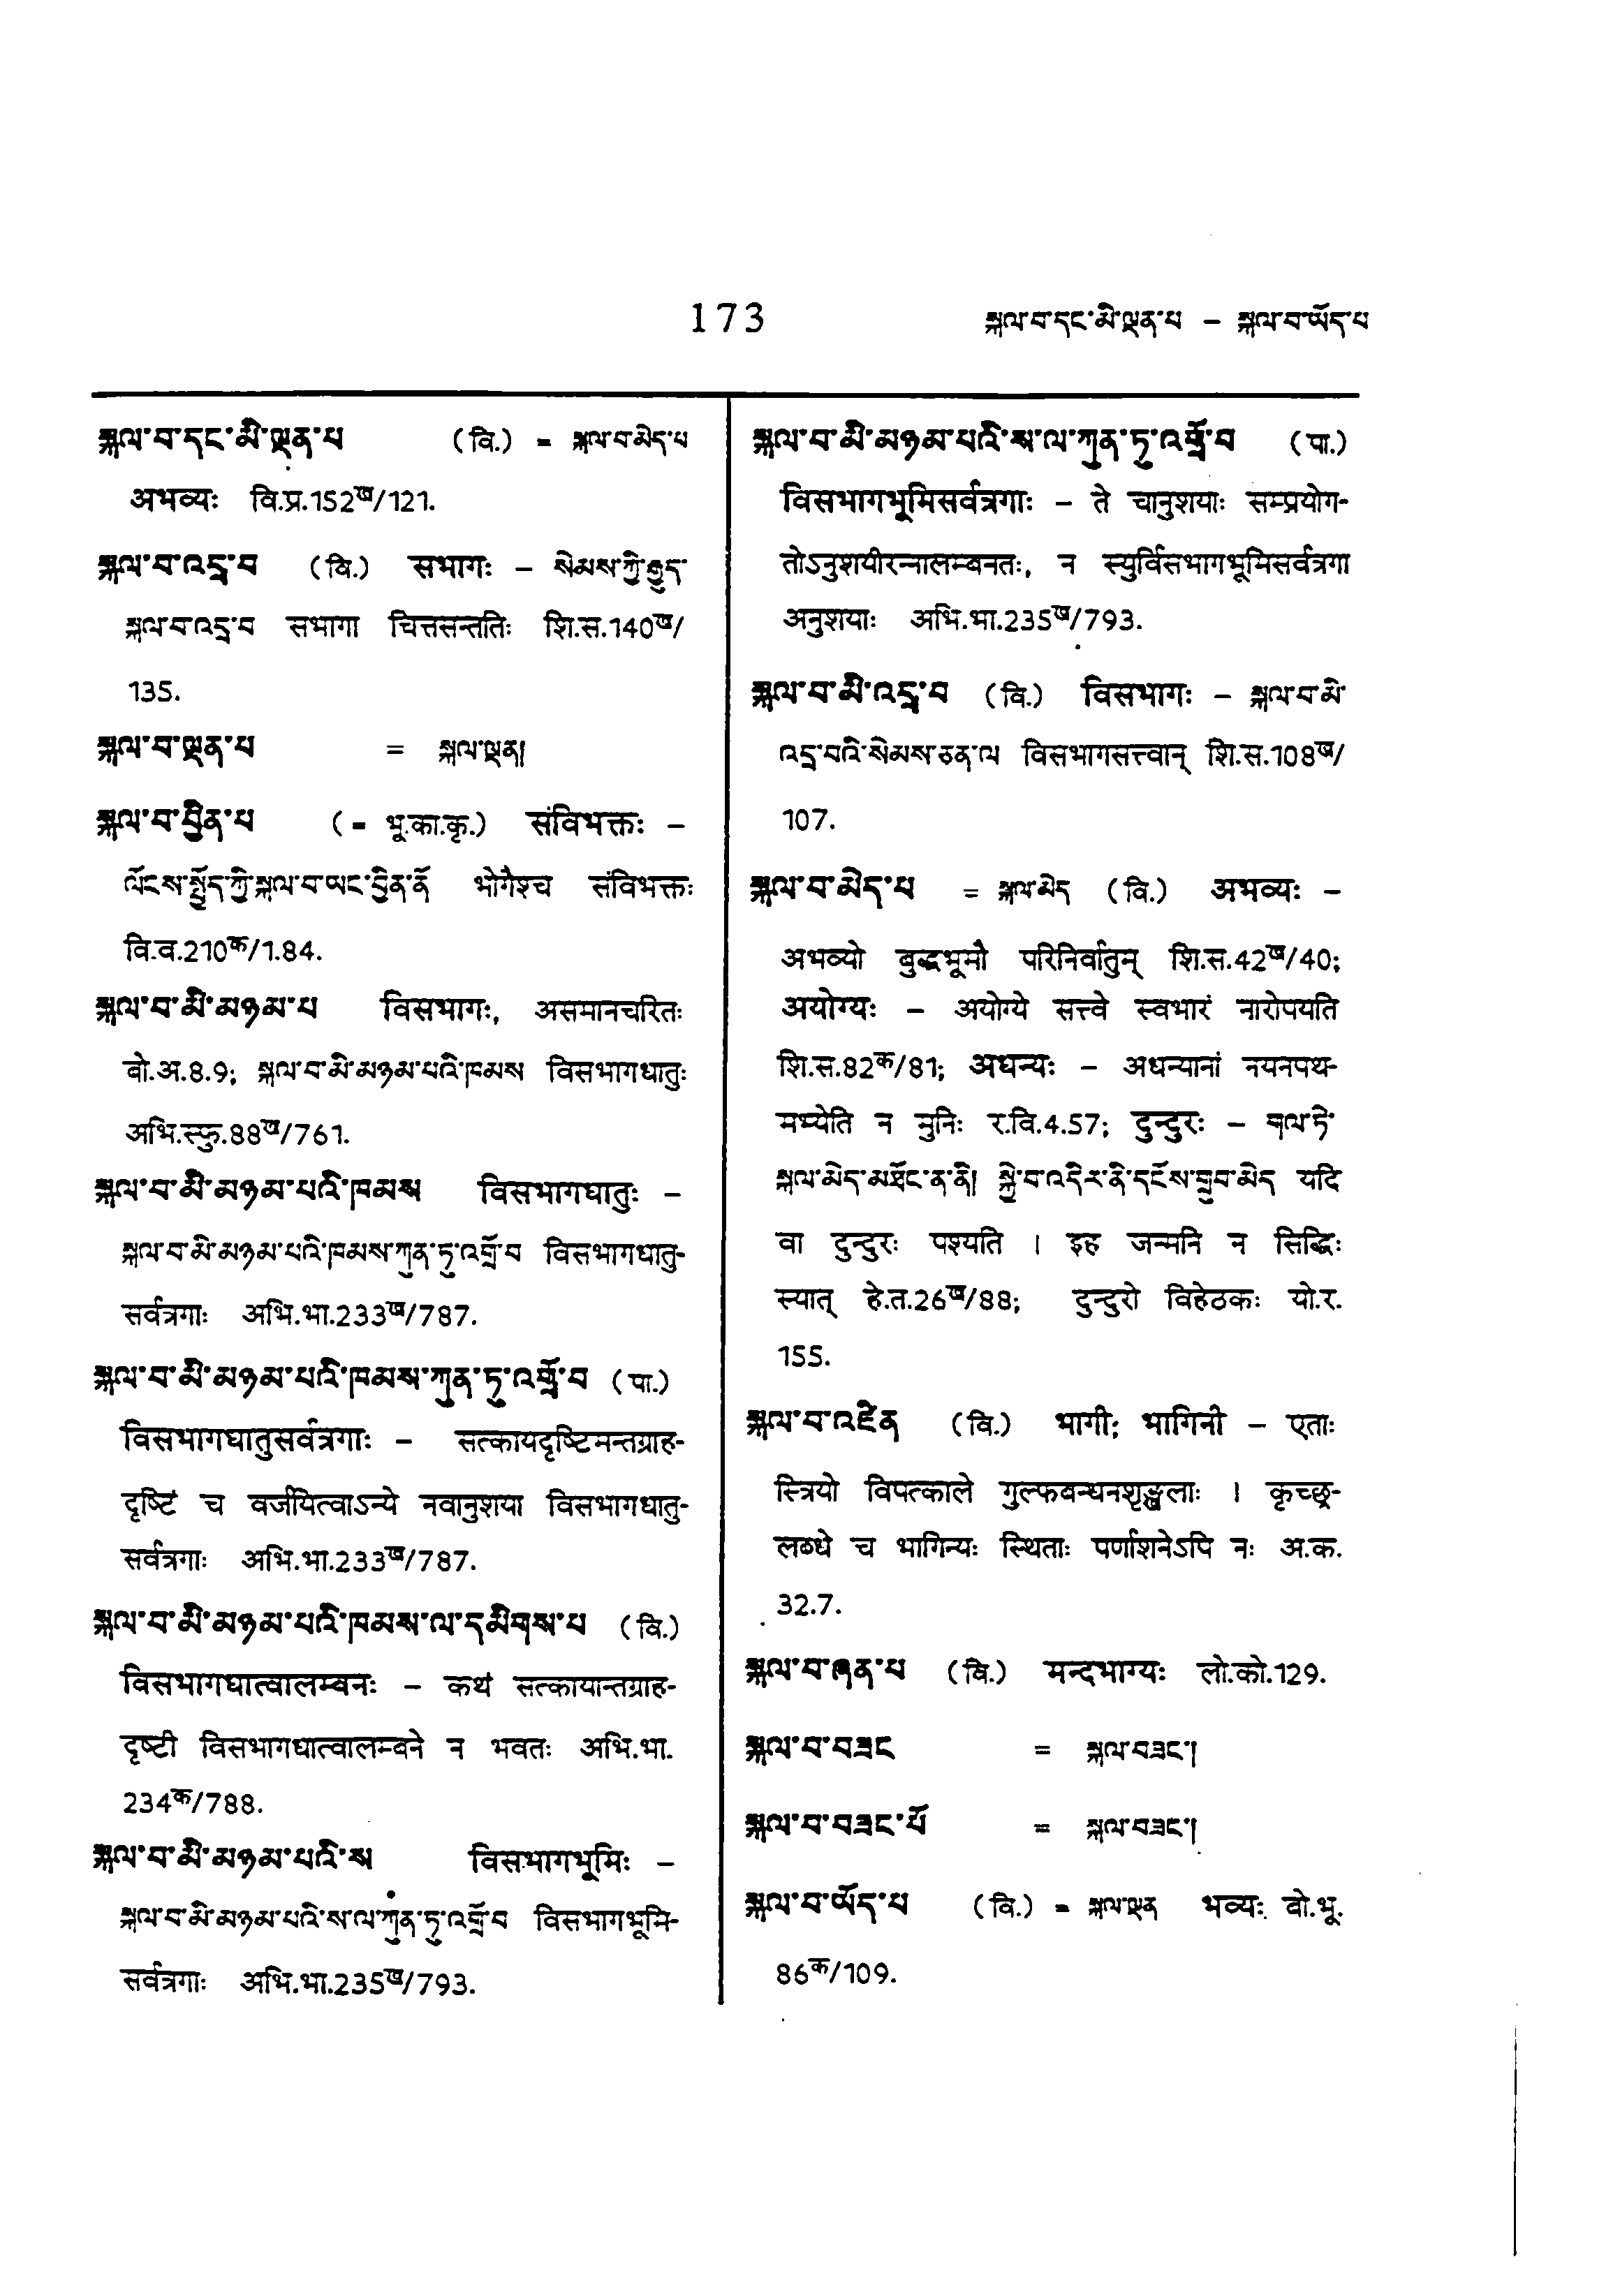 173
སྐལ་བ་དང་མི་ལྡན་པ – སྐལ་བ་ཡོད་པ
སྐལ་བ་དང་མི་ལྡན་པ (वि.) = སྐལ་བ་མེད་པ
अभव्यः वि.प्र.152ख/121.
སྐལ་བ་འདྲ་བ (वि.) सभागः – སེམས་ཀྱི་རྒྱུད་
སྐལ་བ་འདྲ་བ सभागा चित्तसन्ततिः शि.स.140ख/
135.
སྐལ་བ་ལྡན་པ = སྐལ་ལྡན།
སྐལ་བ་བྱིན་པ (= भू.का.कृ.) संविभक्तः –
ལོངས་སྤྱོད་ཀྱི་སྐལ་བ་ཡང་བྱིན་ནོ भोगैश्च संविभक्तः
वि.व.210क/1.84.
སྐལ་བ་མི་མཉམ་པ विसभागः, असमानचरितः
बो.अ.8.9; སྐལ་བ་མི་མཉམ་པའི་ཁམས विसभागधातुः
अभि.स्फु.88ख/761.
སྐལ་བ་མི་མཉམ་པའི་ཁམས विसभागधातुः –
སྐལ་བ་མི་མཉམ་པའི་ཁམས་ཀུན་ཏུ་འགྲོ་བ विसभागधातु-
सर्वत्रगाः अभि.भा.233ख/787.
སྐལ་བ་མི་མཉམ་པའི་ཁམས་ཀུན་ཏུ་འགྲོ་བ (पा.)
विसभागधातुसर्वत्रगाः – सत्कायदृष्टिमन्तग्राह-
दृष्टिं च वर्जयित्वाऽन्ये नवानुशया विसभागधातु-
सर्वत्रगाः अभि.भा.233ख/787.
སྐལ་བ་མི་མཉམ་པའི་ཁམས་ལ་དམིགས་པ (वि.)
विसभागधात्वालम्बनः – कथं सत्कायान्तग्राह-
दृष्टी विसभागधात्वालम्बने न भवतः अभि.भा.
234क/788.
སྐལ་བ་མི་མཉམ་པའི་ས विसभागभूमिः –
སྐལ་བ་མི་མཉམ་པའི་ས་ལ་ཀུན་ཏུ་འགྲོ་བ विसभागभूमि-
सर्वत्रगाः अभि.भा.235ख/793.
སྐལ་བ་མི་མཉམ་པའི་ས་ལ་ཀུན་ཏུ་འགྲོ་བ (पा.)
विसभागभूमिसर्वत्रगाः – ते चानुशयाः सम्प्रयोग-
तोऽनुशयीरन्नालम्बनतः, न स्युर्विसभागभूमिसर्वत्रगा
अनुशयाः अभि.भा.235ख/793.
སྐལ་བ་མི་འདྲ་བ (वि.) विसभागः – སྐལ་བ་མི་
འདྲ་བའི་སེམས་ཅན་ལ विसभागसत्त्वान् शि.स.108ख/
107.
སྐལ་བ་མེད་པ = སྐལ་མེད (वि.) अभव्यः –
अभव्यो बुद्धभूमौ परिनिर्वातुम् शि.स.42ख/40;
अयोग्यः – अयोग्ये सत्त्वे स्वभारं नारोपयति
शि.स.82क/81; अधन्यः – अधन्यानां नयनपथ-
मभ्येति न मुनिः र.वि.4.57; दुन्दुरः – གལ་ཏེ་
སྐལ་མེད་མཐོང་ན་ནི། སྐྱེ་བ་འདིར་ནི་དངོས་གྲུབ་མེད यदि
वा दुन्दुरः पश्यति । इह जन्मनि न सिद्धिः
स्यात् हे.त.26ख/88; दुन्दुरो विहेठकः यो.र.
155.
སྐལ་བ་འཛིན (वि.) भागी; भागिनी – एताः
स्त्रियो विपत्काले गुल्फबन्धनशृङ्खलाः । कृच्छ्र-
लब्धे च भागिन्यः स्थिताः पर्णाशनेऽपि नः अ.क.
32.7.
སྐལ་བ་ཞན་པ (वि.) मन्दभाग्यः लो.को.129.
སྐལ་བ་བཟང = སྐལ་བཟང་།
སྐལ་བ་བཟང་པོ = སྐལ་བཟང་།
སྐལ་བ་ཡོད་པ (वि.) = སྐལ་ལྡན भव्यः बो.भू.
86क/109.